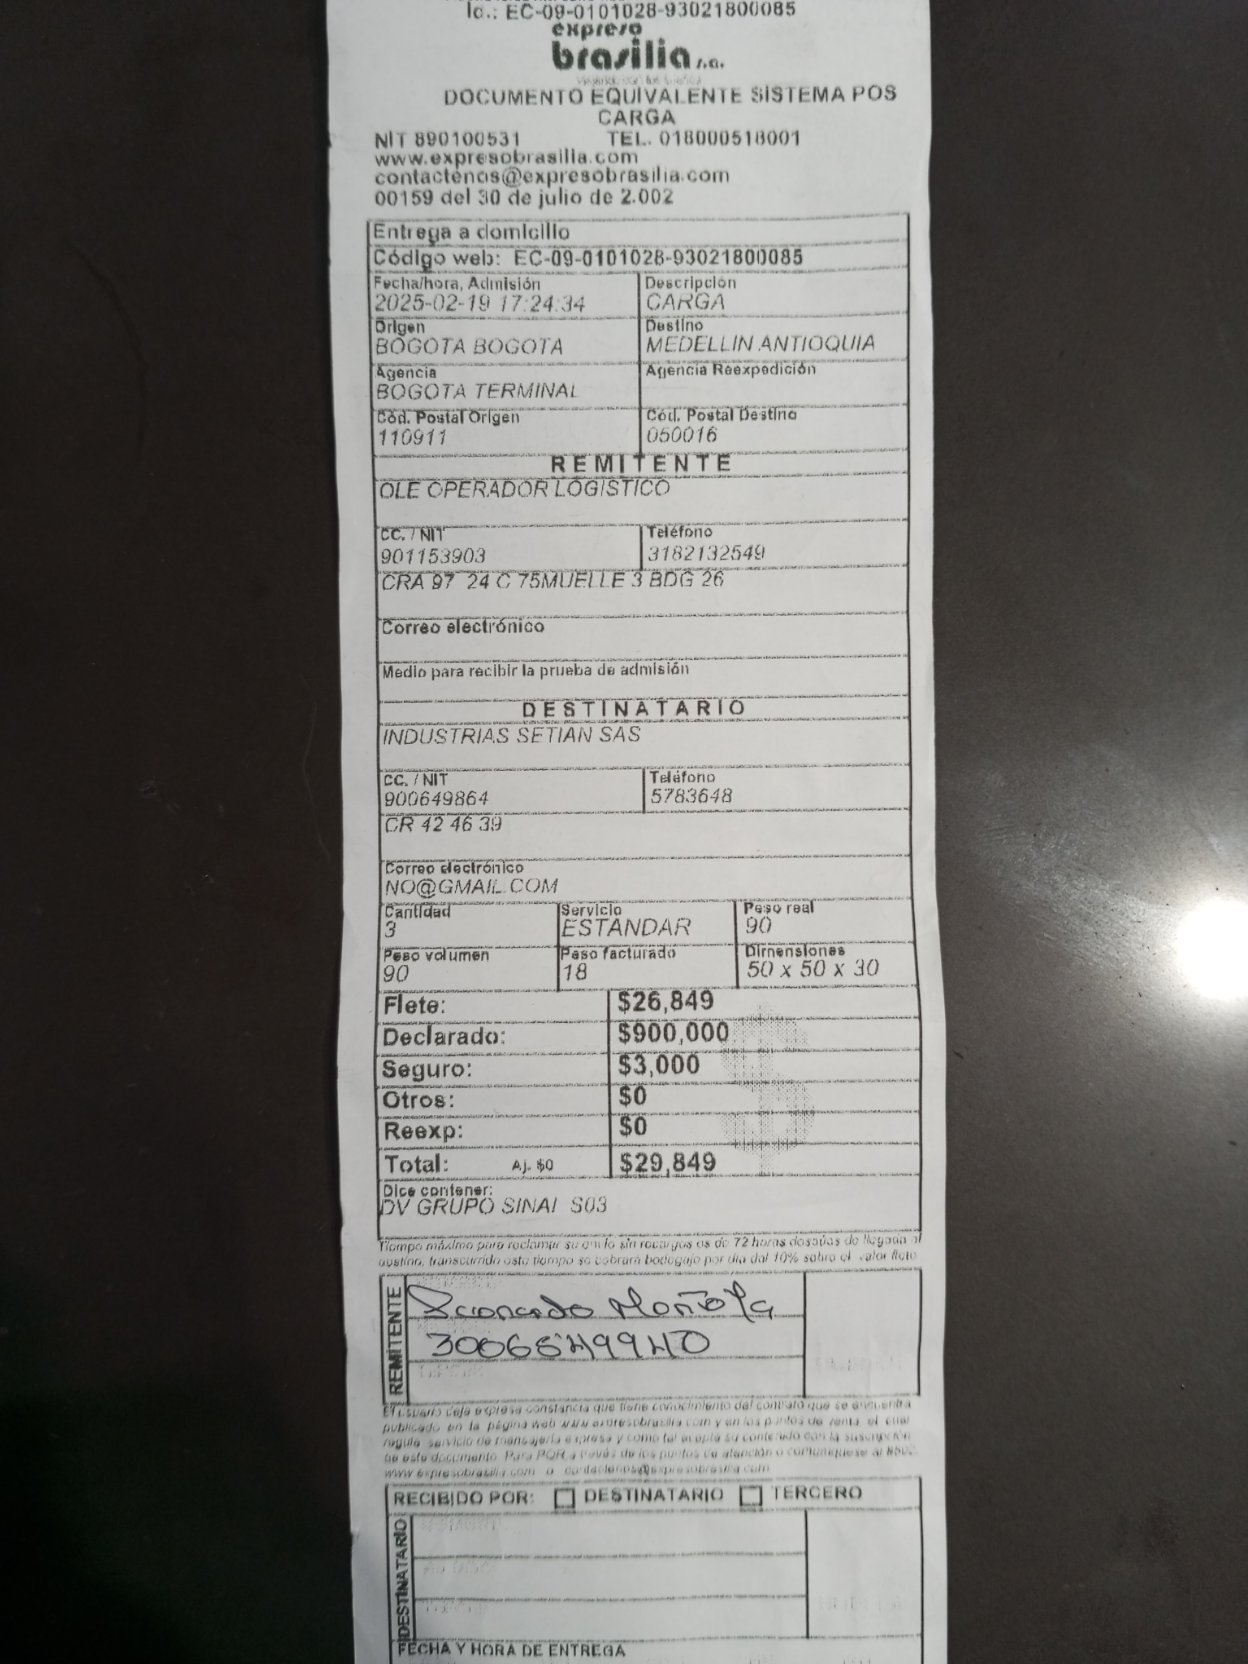 Id.: EC-09-0101028-93021800085
expreso
brasilia s.a.
DOCUMENTO EQUIVALENTE SISTEMA POS
CARGA
NIT 890100531 TEL. 018000518001
www.expresobrasilia.com
contactenos@expresobrasilia.com
00159 del 30 de julio de 2.002
Entrega a domicilio
Código web: EC-09-0101028-93021800085
Fecha/hora, Admisión Descripción
2025-02-19 17:24:34 CARGA
Origen Destino
BOGOTA BOGOTA MEDELLIN ANTIOQUIA
Agencia Agencia Reexpedición
BOGOTA TERMINAL
Cód. Postal Origen Cód. Postal Destino
110911 050016
REMITENTE
OLE OPERADOR LOGISTICO
CC. / NIT Teléfono
901153903 3182132549
CRA 97 24 C 75MUELLE 3 BDG 26
Correo electrónico
Medio para recibir la prueba de admisión
DESTINATARIO
INDUSTRIAS SETIAN SAS
CC. / NIT Teléfono
900649864 5783648
CR 42 46 39
Correo electrónico
NO@GMAIL.COM
Cantidad Servicio Peso real
3 ESTANDAR 90
Peso volumen Peso facturado Dimensiones
90 18 50 x 50 x 30
Flete: $26,849
Declarado: $900,000
Seguro: $3,000
Otros: $0
Reexp: $0
Total: Aj. $0 $29,849
Dice contener:
DV GRUPO SINAI S03
Tiempo máximo para reclamar su envío sin recargos es de 72 horas después de llegada al
destino, transcurrido este tiempo se cobrará bodegaje por día del 10% sobre el valor flete
REMITENTE
3006549940
El usuario deja expresa constancia que tiene conocimiento del contrato que se encuentra
publicado en la página web www.expresobrasilia.com y en los puntos de venta, el cual
regula servicio de mensajería expresa y como tal acepta su contenido con la suscripción
de este documento. Para PQR a través de los puntos de atención o comuníquese al
www.expresobrasilia.com o contactenos@expresobrasilia.com
RECIBIDO POR: DESTINATARIO TERCERO
DESTINATARIO
FECHA Y HORA DE ENTREGA